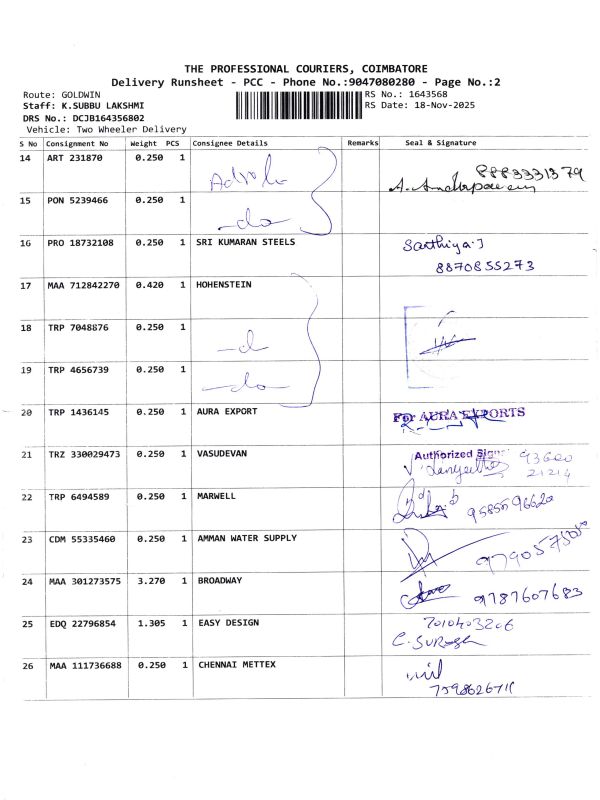 THE PROFESSIONAL COURIERS, COIMBATORE
Delivery Runsheet - PCC - Phone No.:9047080280 - Page No.:2
Route: GOLDWIN RS No.: 1643568
Staff: K.SUBBU LAKSHMI RS Date: 18-Nov-2025
DRS No.: DCJB164356802
Vehicle: Two Wheeler Delivery
S No Consignment No Weight PCS Consignee Details Remarks Seal & Signature
14 ART 231870 0.250 1 8883331379
15 PON 5239466 0.250 1 -do-
16 PRO 18732108 0.250 1 SRI KUMARAN STEELS Sathiya.J
8870855273
17 MAA 712842270 0.420 1 HOHENSTEIN
18 TRP 7048876 0.250 1 -d-
19 TRP 4656739 0.250 1 -do-
20 TRP 1436145 0.250 1 AURA EXPORT For AURA EXPORTS
21 TRZ 330029473 0.250 1 VASUDEVAN Authorized 93600
21214
22 TRP 6494589 0.250 1 MARWELL 9585596620
23 CDM 55335460 0.250 1 AMMAN WATER SUPPLY
24 MAA 301273575 3.270 1 BROADWAY 9787607683
25 EDQ 22796854 1.305 1 EASY DESIGN 7010403206
C. SURESH
26 MAA 111736688 0.250 1 CHENNAI METTEX
7598626711